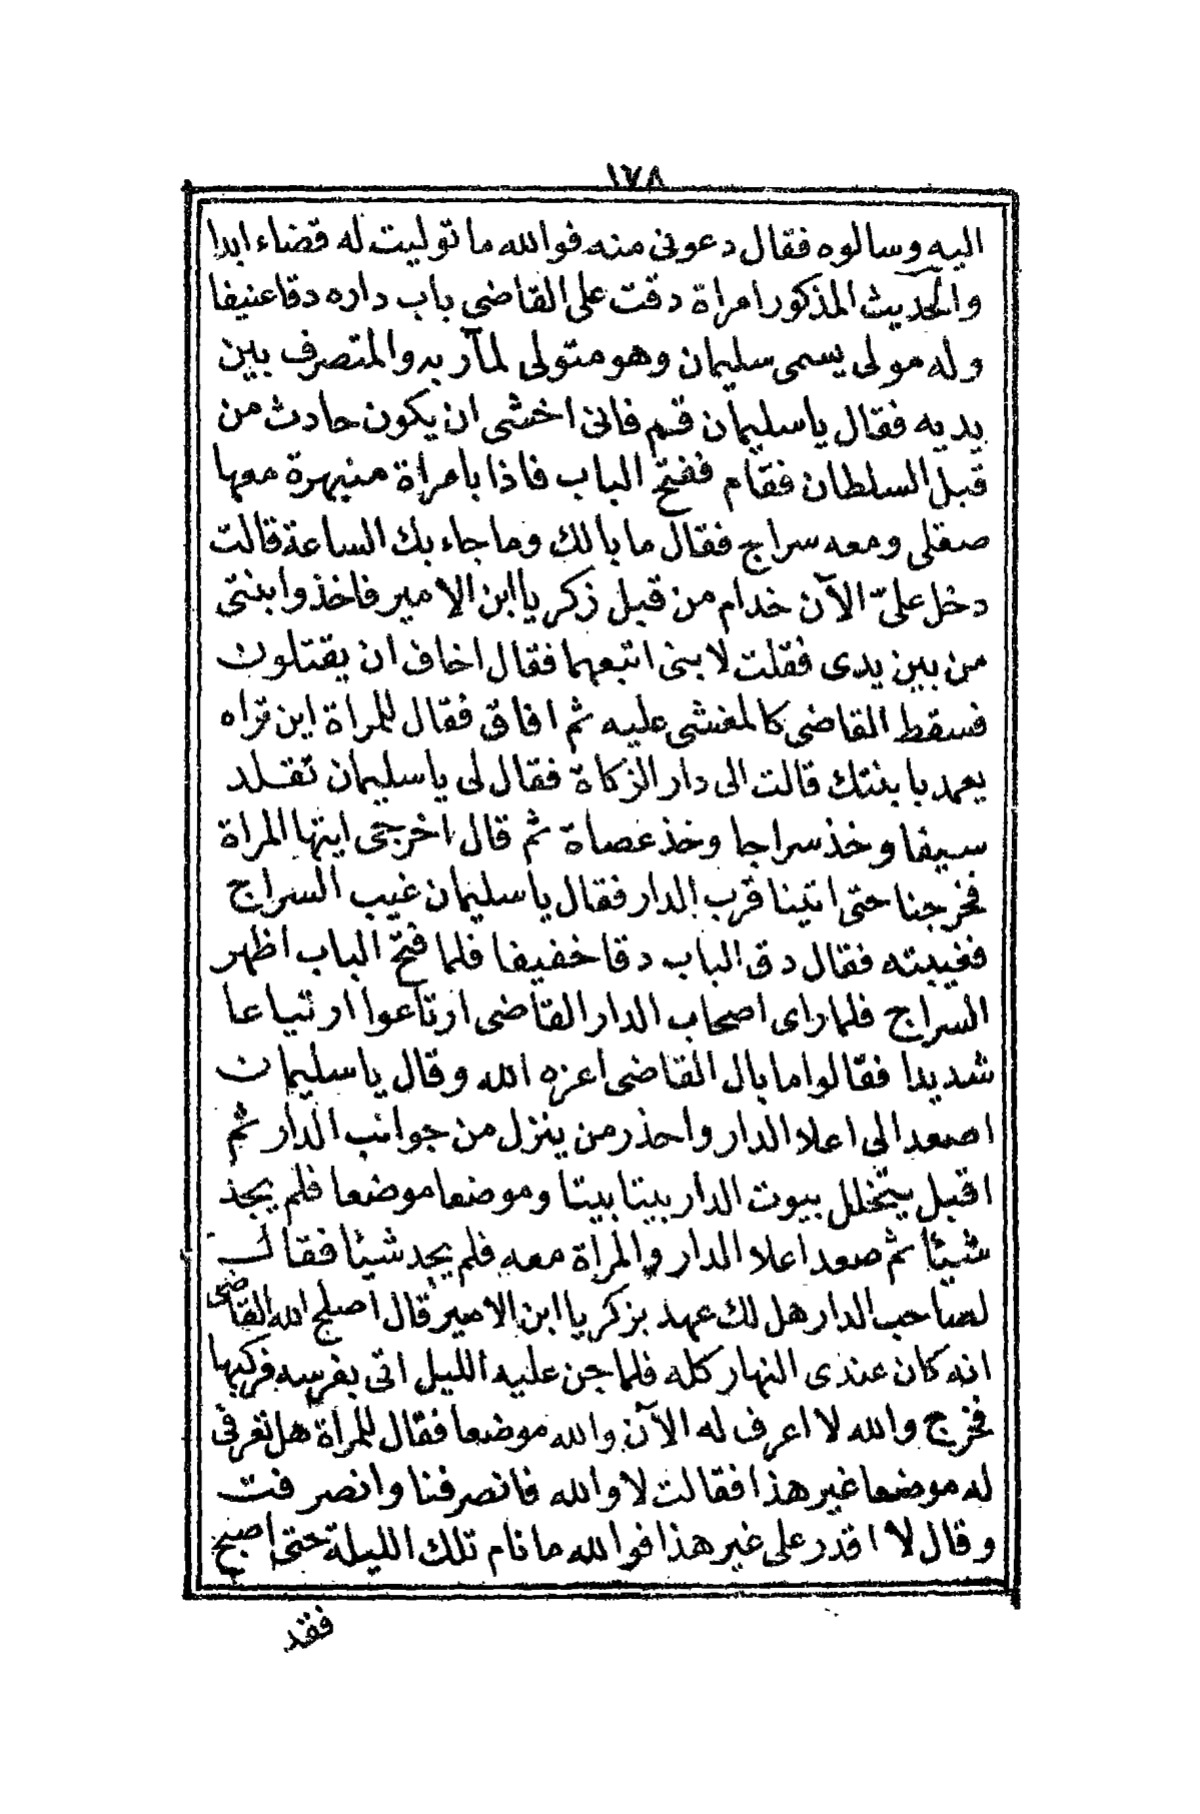 ١٧٨
اليه وسالوه فقال دعونى منه فوالله ما توليت له قضاء ابدا
والحديث المذكور امراة دقت على القاضى باب داره دقا عنيفا
وله مولى يسمى سليمان وهو متولى لمآربه والمتصرف بين
يديه فقال يا سليمان قم فانى اخشى ان يكون حادث من
قبل السلطان فقام ففتح الباب فاذا بامراة منبهرة معها
صقلى ومعه سراج فقال ما بالك وما جاء بك الساعة قالت
دخل علىّ الآن خدام من قبل زكريا ابن الامير فاخذوا بنتى
من بين يدى فقلت لابنى اتبعهما فقال اخاف ان يقتلون
فسقط القاضى كالمغشى عليه ثم افاق فقال للمراة اين تراه
يعمد بابنتك قالت الى دار الزكاة فقال لى يا سليمان تقلد
سيفا وخذ سراجا وخذ عصاة ثم قال اخرجى ايتها المراة
فخرجنا حتى اتينا قرب الدار فقال يا سليمان غيب السراج
فغيبته فقال دق الباب دقا خفيفا فلما فتح الباب اظهر
السراج فلما راى اصحاب الدار القاضى ارتاعوا ارتياعا
شديدا فقالوا ما بال القاضى اعزه الله وقال يا سليمان
اصعد الى اعلا الدار واحذر من ينزل من جوانب الدار ثم
اقبل يتخلل بيوت الدار بيتا بيتا وموضعا موضعا فلم يجد
شيئا ثم صعد اعلا الدار والمراة معه فلم يجد شيئا فقال
لصاحب الدار هل لك عهد بزكريا ابن الامير قال اصلح الله القاضى
انه كان عندى النهار كله فلما جن عليه الليل اتى بفرسه فركبها
فخرج والله لا اعرف له الآن والله موضعا فقال للمراة هل تعرفى
له موضعا غير هذا فقالت لا والله فانصرفنا وانصرفت
وقال لا اقدر على غير هذا فوالله ما نام تلك الليلة حتى اصبح
فقد